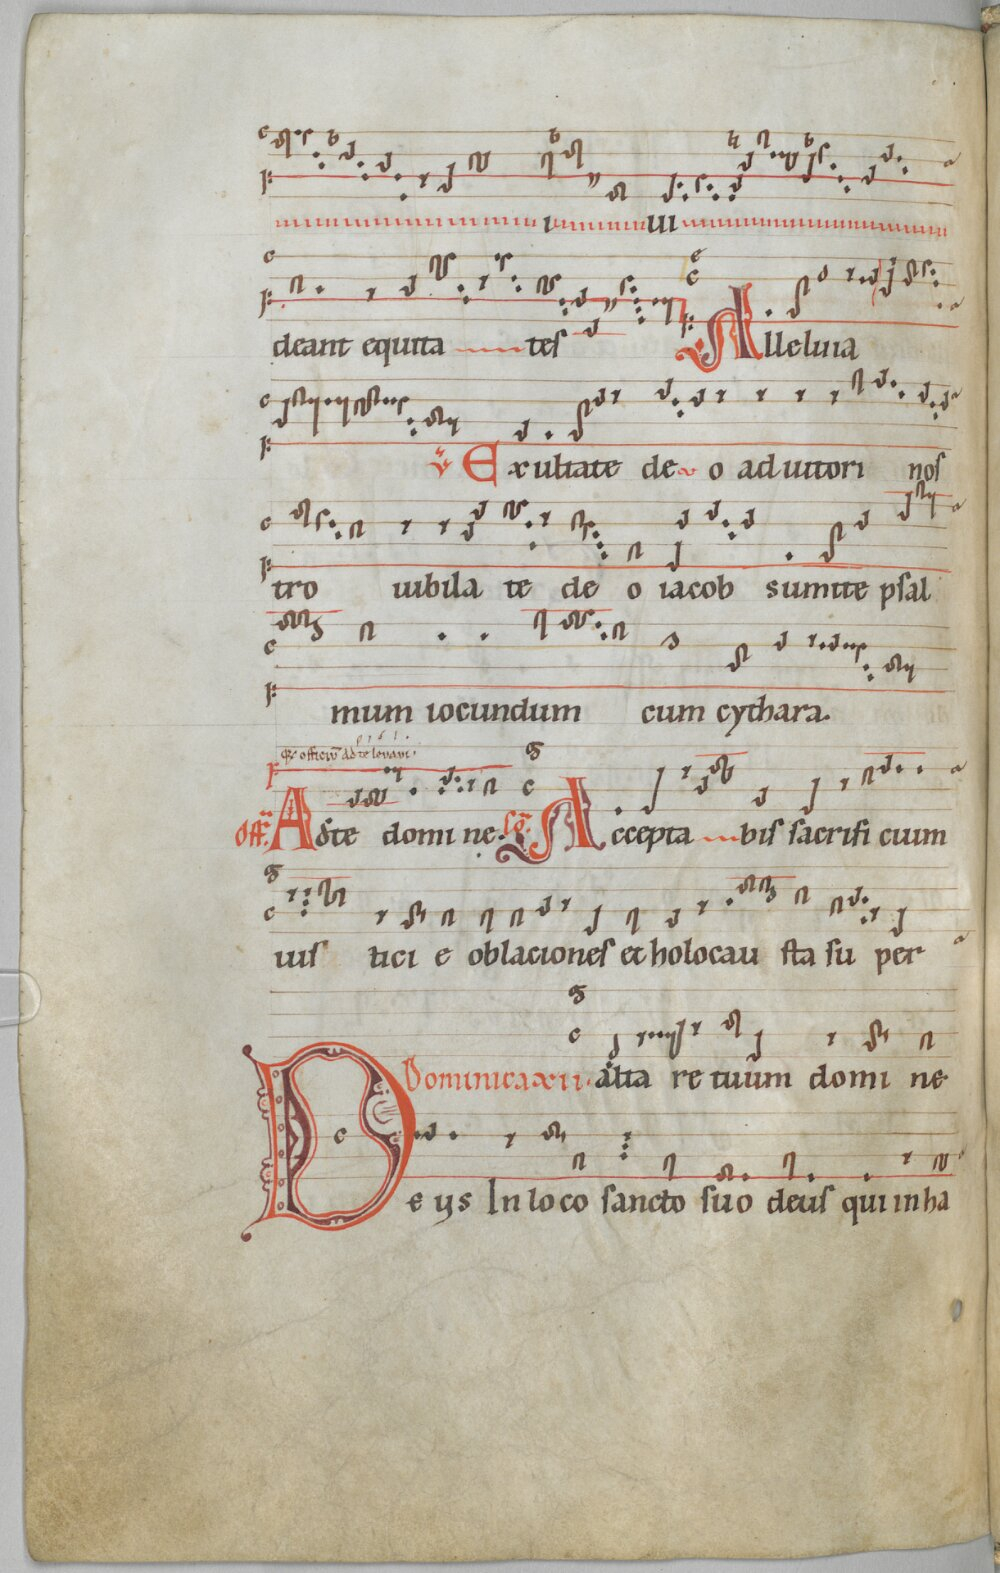 ı uı
deant equita tes Alleluıa
v̄ Exultate de o adıutori nos
tro ıubıla te de o ıacob sumite psal
mum ıocundum cum cythara.
Offr̄. Ad te domi ne. Cō. Accepta bis sacrifi cium
ius tici e oblaciones et holocau sta su per
Dominica xii. alta re tuūm domi ne
De ys In lo co sancto suo deus qui in ha